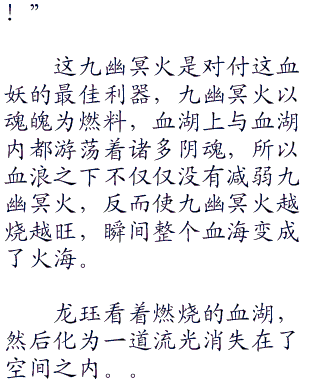 ！”
这九幽冥火是对付这血
妖的最佳利器，九幽冥火以
魂魄为燃料，血湖上与血湖
内都游荡着诸多阴魂，所以
血浪之下不仅仅没有减弱九
幽冥火，反而使九幽冥火越
烧越旺，瞬间整个血海变成
了火海。
龙珏看着燃烧的血湖，
然后化为一道流光消失在了
空间之内。。